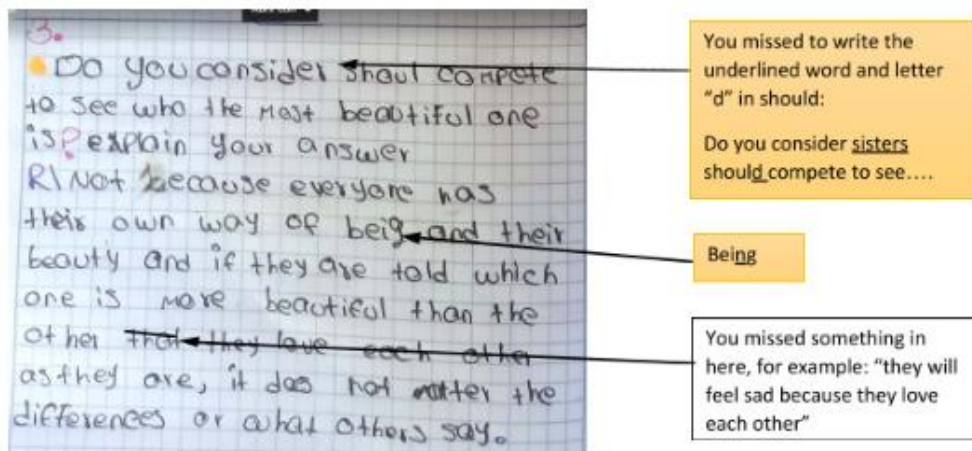 3.
Do you consider shoul compete
to see who the most beautiful one
is? explain your answer
R\ Not because everyone has
their own way of beig and their
beauty and if they are told which
one is more beautiful than the
other that they love each other
as they are, it does not matter the
differences or what others say.
You missed to write the
underlined word and letter
"d" in should:
Do you consider sisters
should compete to see....
Being
You missed something in
here, for example: "they will
feel sad because they love
each other"